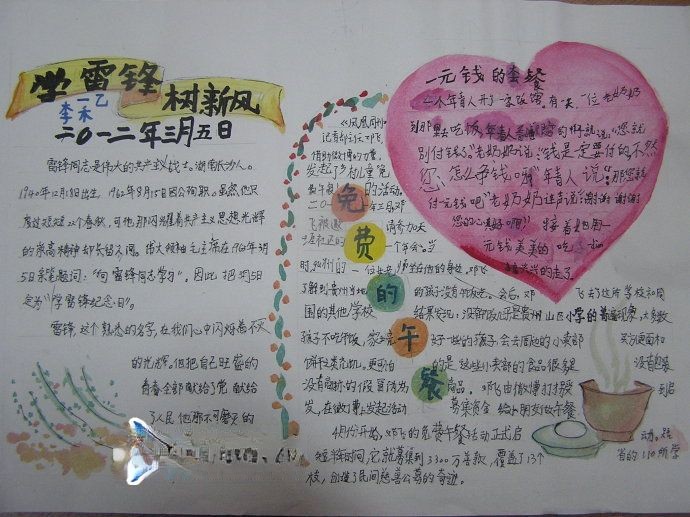 学雷锋
树新风
李一禾乙
二〇一二年三月五日
雷锋同志是伟大的共产主义战士。湖南长沙人。
1940年12月18日出生，1962年8月15日因公殉职。虽然他只
度过短短22个春秋，可他那闪耀着共产主义思想光辉
的崇高精神却长留人间。伟大领袖毛主席在1963年3月
5日亲笔题词：“向雷锋同志学习”。因此把3月5日
定为“学雷锋纪念日”。
雷锋，这个熟悉的名字，在我们心中闪烁着不灭
的光辉。他把自己旺盛的
青春全部献给了党 献给
了人民 他那不可磨灭的
免费的午餐
《凤凰周刊》
记者部主任邓飞，
借助微博的力量，
发起了乡村儿童免
费午餐的活动。
飞被邀请参加天
一个年会。当
时，
的孩子没有午饭吃。会后，邓飞去了这所学校和周
围的其他学校
结果发现：没有午饭吃是贵州山区小学的普遍现象，大多数
孩子不吃午饭，家境好一些的孩子，会去周边的小卖部买方便面和
饼干这类充饥。更可怕的是这些小卖部的食品很多是没有包装
没有商标的假冒伪劣商品。邓飞由微博打拐受到启
发，在微博上发起活动募集资金给小朋友做午餐
4月份开始，邓飞的免费午餐活动正式启动。在
短短时间，它就募集到3300万善款，覆盖了13个省的110所学
校，创造了民间慈善公募的奇迹。
一元钱的套餐
一个年青人开了一家饭馆。有一天，一位老奶奶
到那
就说，“您就
别付钱了。”老奶奶说：“钱是一定要付的，不然
您怎么争钱啊”年青人说：“那您就
付一元钱吧”老奶奶连声说：“谢谢 谢谢
您的心真好啊！”接着她用一
元钱美美的吃了
高兴兴的走了。